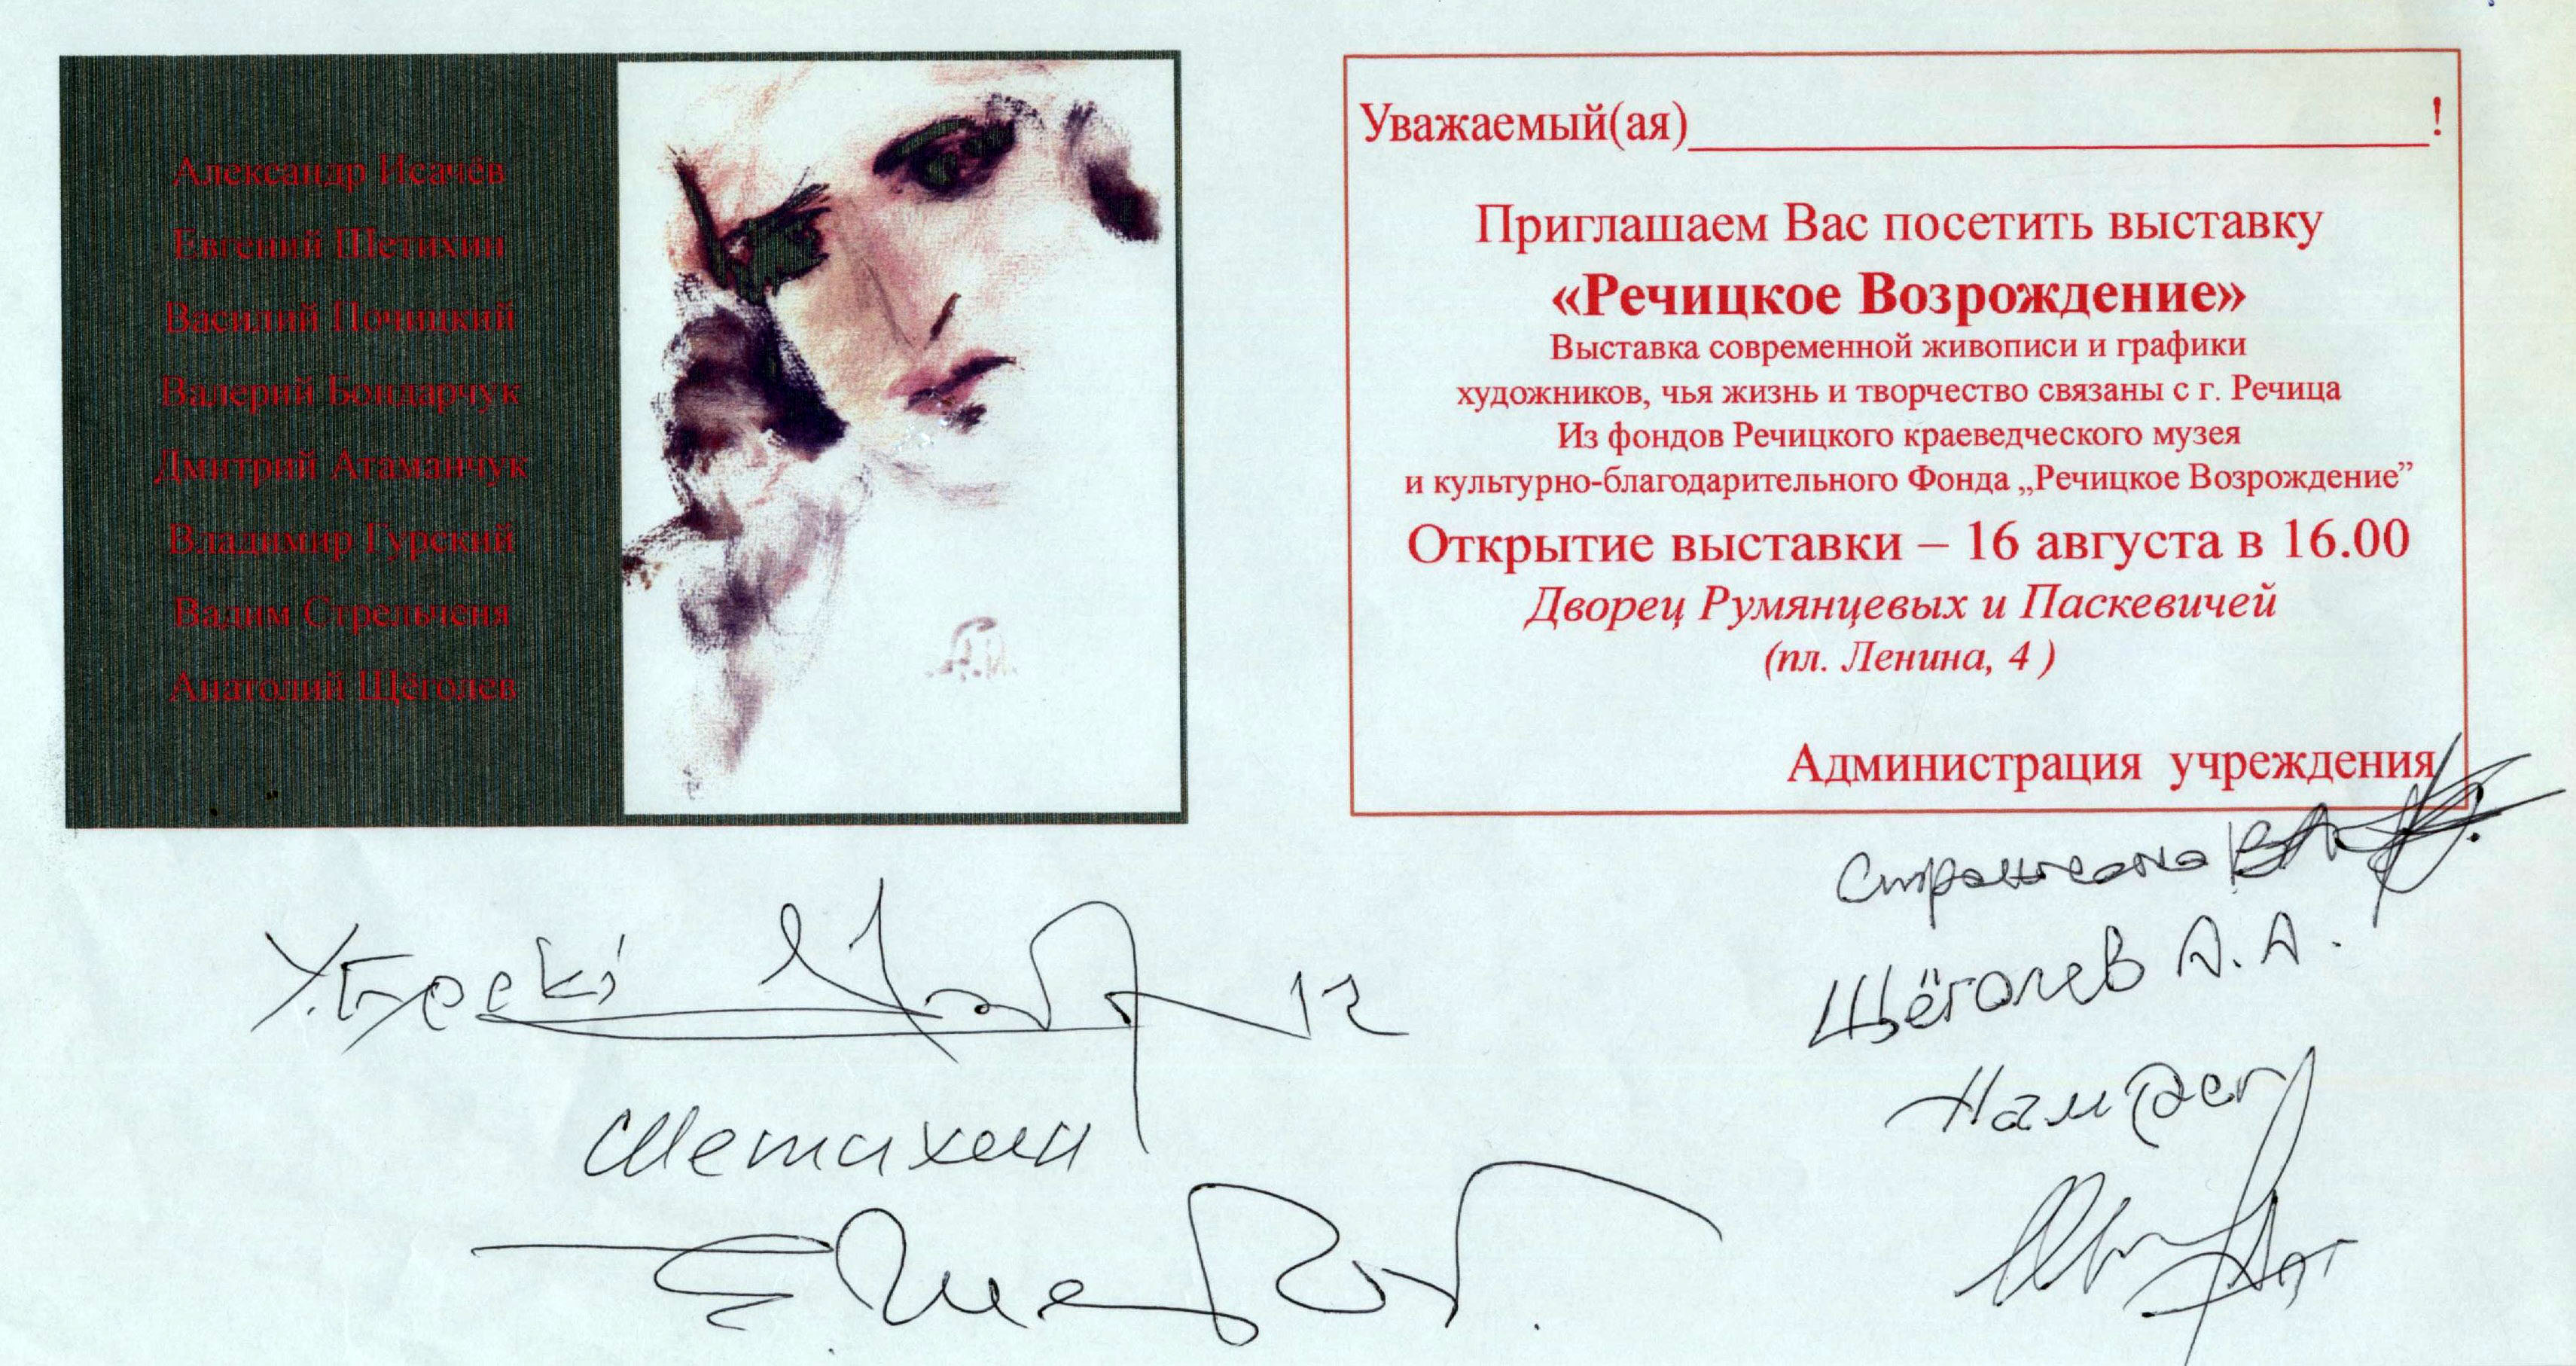 Александр Исачёв
Евгений Шетихин
Василий Почицкий
Валерий Бондарчук
Дмитрий Атаманчук
Владимир Гурский
Вадим Стрельченя
Анатолий Щёголев
Уважаемый(ая)______________________________!
Приглашаем Вас посетить выставку
«Речицкое Возрождение»
Выставка современной живописи и графики
художников, чья жизнь и творчество связаны с г. Речица
Из фондов Речицкого краеведческого музея
и культурно-благодарительного Фонда „Речицкое Возрождение”
Открытие выставки – 16 августа в 16.00
Дворец Румянцевых и Паскевичей
(пл. Ленина, 4 )
Администрация учреждения
Щёголев А. А.
Шетихин